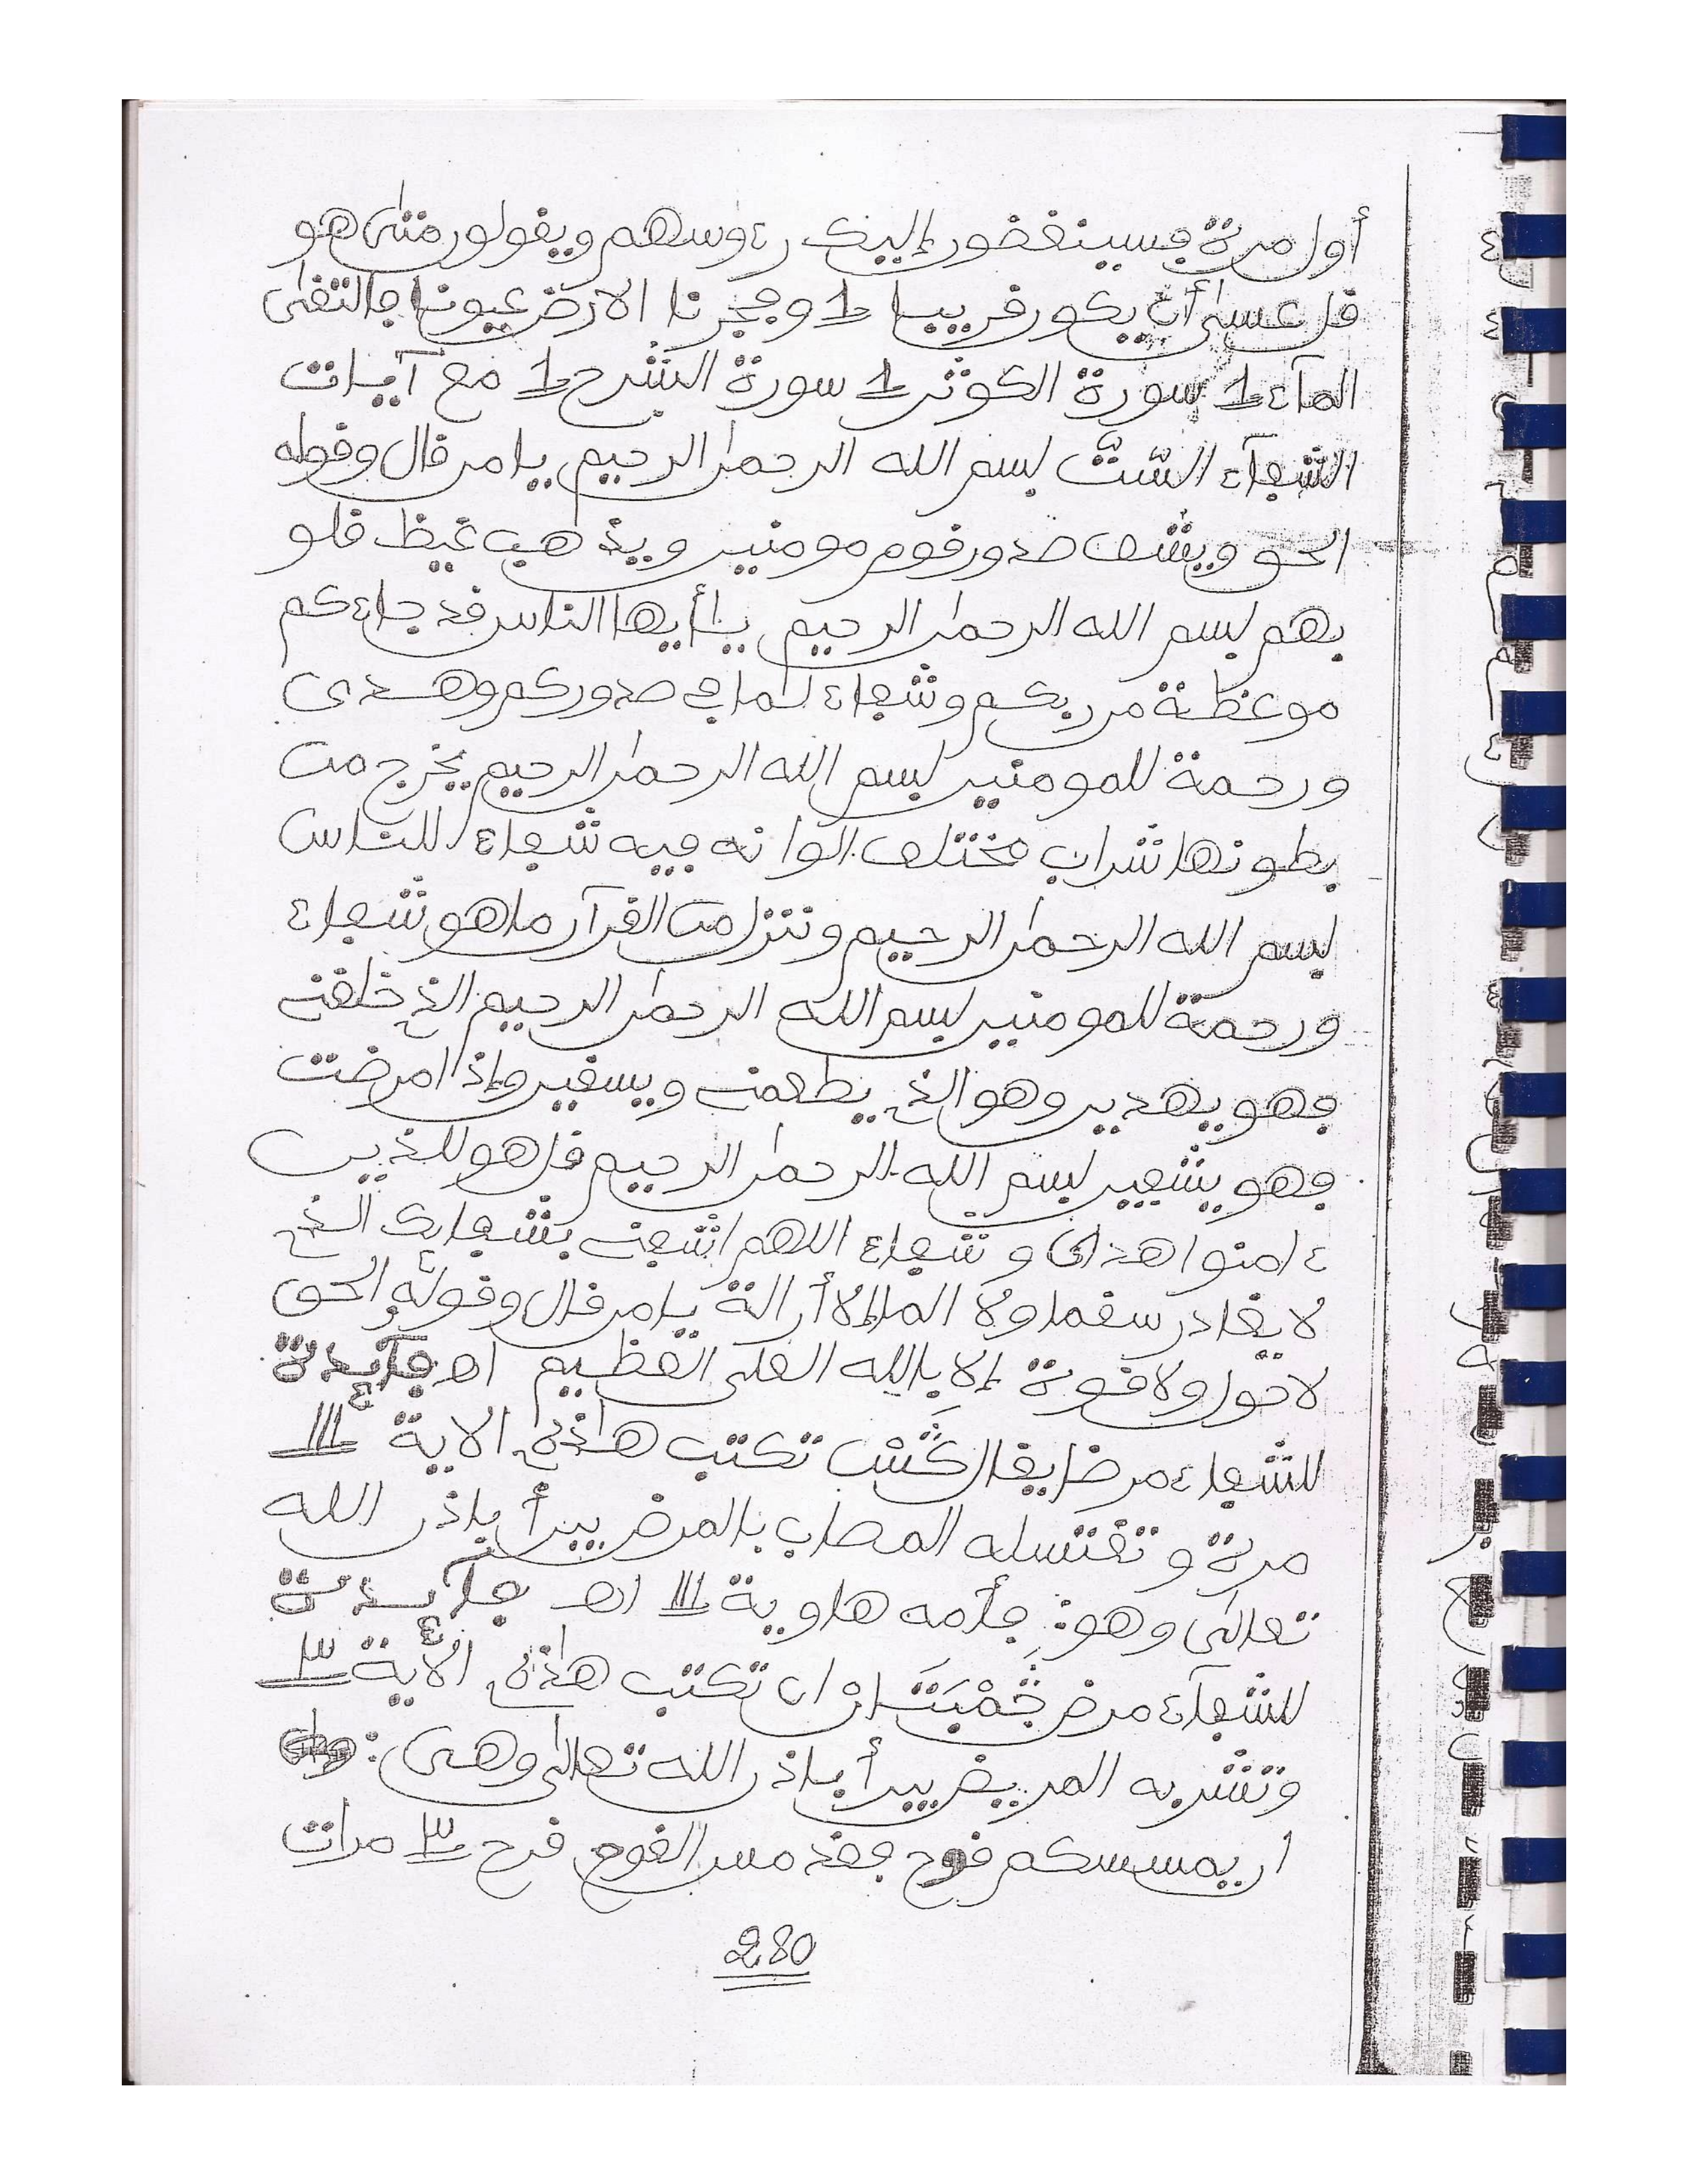 أول مرة فسينغضون إليك رءوسهم ويقولون متى هو
قل عسى أن يكون قريبا 1 وفجرنا الارض عيونا فالتقى
الماء 1 سورة الكوثر 1 سورة الشرح 1 مع آيات
الشفآء السّتّ بسم الله الرحمن الرحيم يا من قال وقوله
الحق ويشف صدور قوم مومنين ويذهب غيظ قلو
بهم بسم الله الرحمن الرحيم يأيها الناس قد جاءكم
موعظة من ربكم وشفاء لما في صدوركم وهدى
ورحمة للمومنين بسم الله الرحمن الرحيم يخرج من
بطونها شراب مختلف الوانه فيه شفاء للناس
بسم الله الرحمن الرحيم وننزل من القرآن ما هو شفاء
ورحمة للمومنين بسم الله الرحمن الرحيم الذي خلقني
فهو يهدين وهو الذي يطعمني ويسقين وإذا مرضت
فهو يشفين بسم الله الرحمن الرحيم قل هو للذين
ءامنوا هدى وشفاء اللهم اشفني بشفائك الذي
لا يغادر سقما ولا الما إلا أزالة يا من قال وقوله الحق
لا حول ولا قوة إلا بالله العلى العظيم اهـ فآئدة
للشفاء من مرض يقال كَشْش تكتب هذه الاية 111
مرة وتغتسله المصاب بالمرض يبرأ باذن الله
تعالى وهو: فأمه هاوية 111 اهـ فآئدة
للشفآء من مرض تكتب هذه الأية 3
وتشربه المريض يبرأ باذن الله تعالى وهى:
ان يمسسكم قرح فقد مس القوم قرح 3 مرات
280